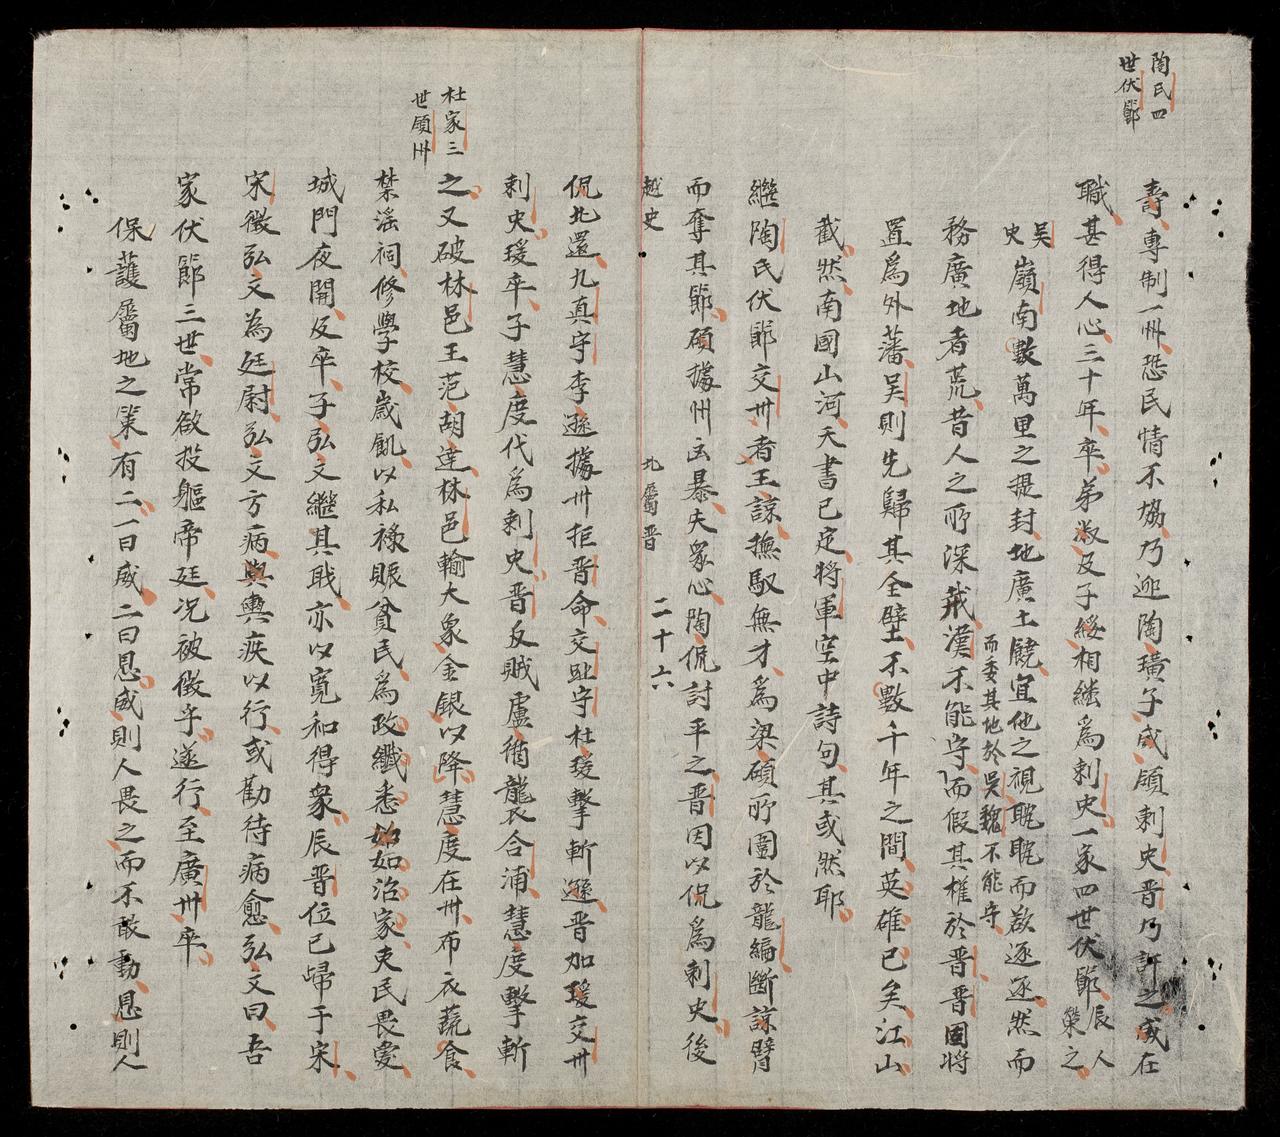 陶氏四
世伏節
壽專制一州恐民情不協乃迎陶璜子威領刺史晋乃許之威在
職甚得人心三十年卒弟淑及子綏相継爲刺史一家四世伏節辰人
榮之
吴
史
嶺南數萬里之提封地廣土饒宜他之視眈眈而欲逐逐然而
務廣地者荒昔人之所深戒漢不能守而假其権於晋晋固將
而委其地於吴魏不能守
置爲外藩吴則先歸其全壁不數千年之間英雄已矣江山
截然南國山河天書已定將軍空中詩句其或然耶
継陶氏伏節交州者王諒撫馭無才爲梁碩所圍於龍編斷諒臂
而奪其節碩據州凶暴失衆心陶侃討平之晋因以侃爲刺史後
越史
北屬晋
二十六
侃北還九真守李遜據州拒晋命交趾守杜瑗擊斬遜晋加瑗交州
刺史瑗卒子慧度代爲刺史晋反贼盧循襲合浦慧度擊斬
杜家三
世領州
之又破林邑王范胡達林邑輸大象金銀以降慧度在州布衣蔬食
禁滛祠修學校歳飢以私祿賑貧民爲政纖悉如治家吏民畏愛
城門夜開及卒子弘文継其職亦以寛和得衆辰晋位已歸于宋
宋徵弘文為廷尉弘文方病輿疾以行或勸待病愈弘文曰吾
家伏節三世常欲投軀帝廷况被徵乎遂行至廣州卒
保護屬地之策有二一曰威二曰恩威則人畏之而不敢動恩則人